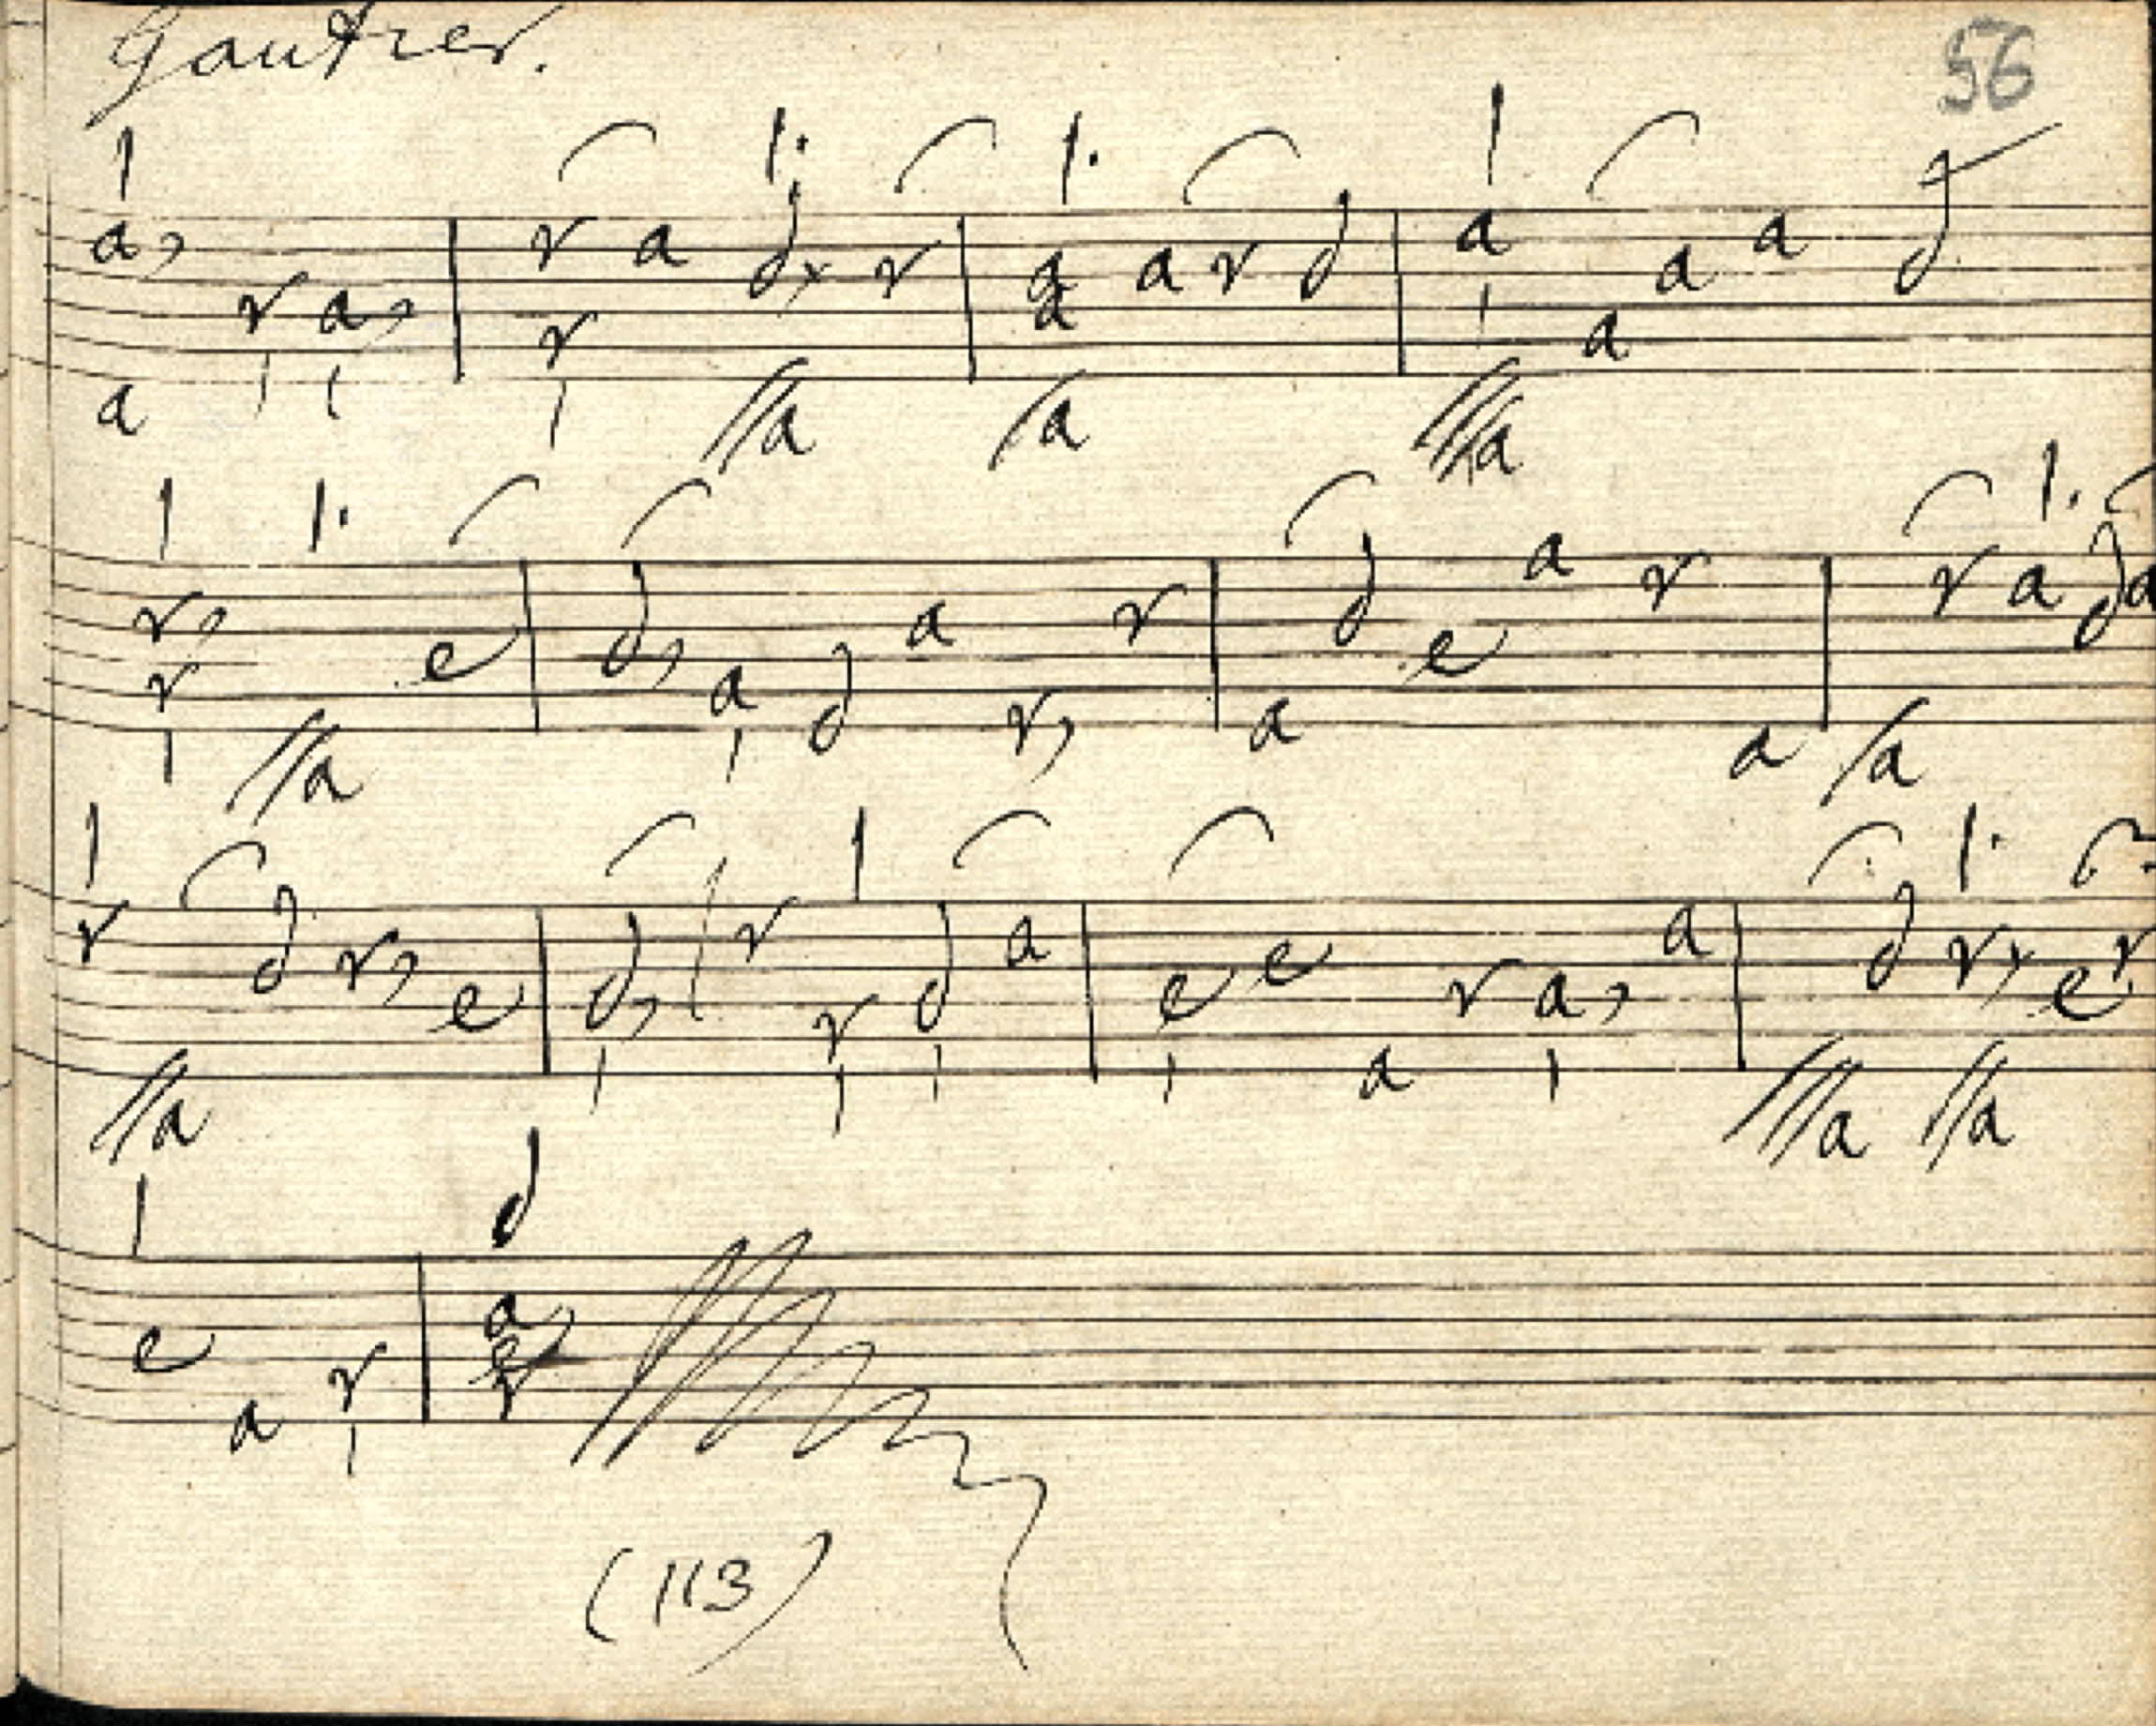 Gautier.
56
a r a r a d r a a a r d a a a a d
a a a a
r r e d a d a r r a d e a r a r a d a
a a
r d r e d r r d a e e a r a a d r e r
a a a
e a r a e r
(113)